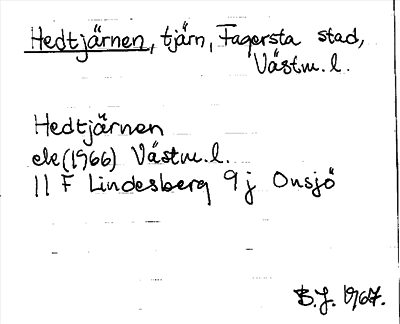 Hedtjärnen, tjärn, Fagersta stad,
Västm. l.
Hedtjärnen
ek (1966) Västm. l.
11 F Lindesberg 9 j Onsjö
B.J. 1967.